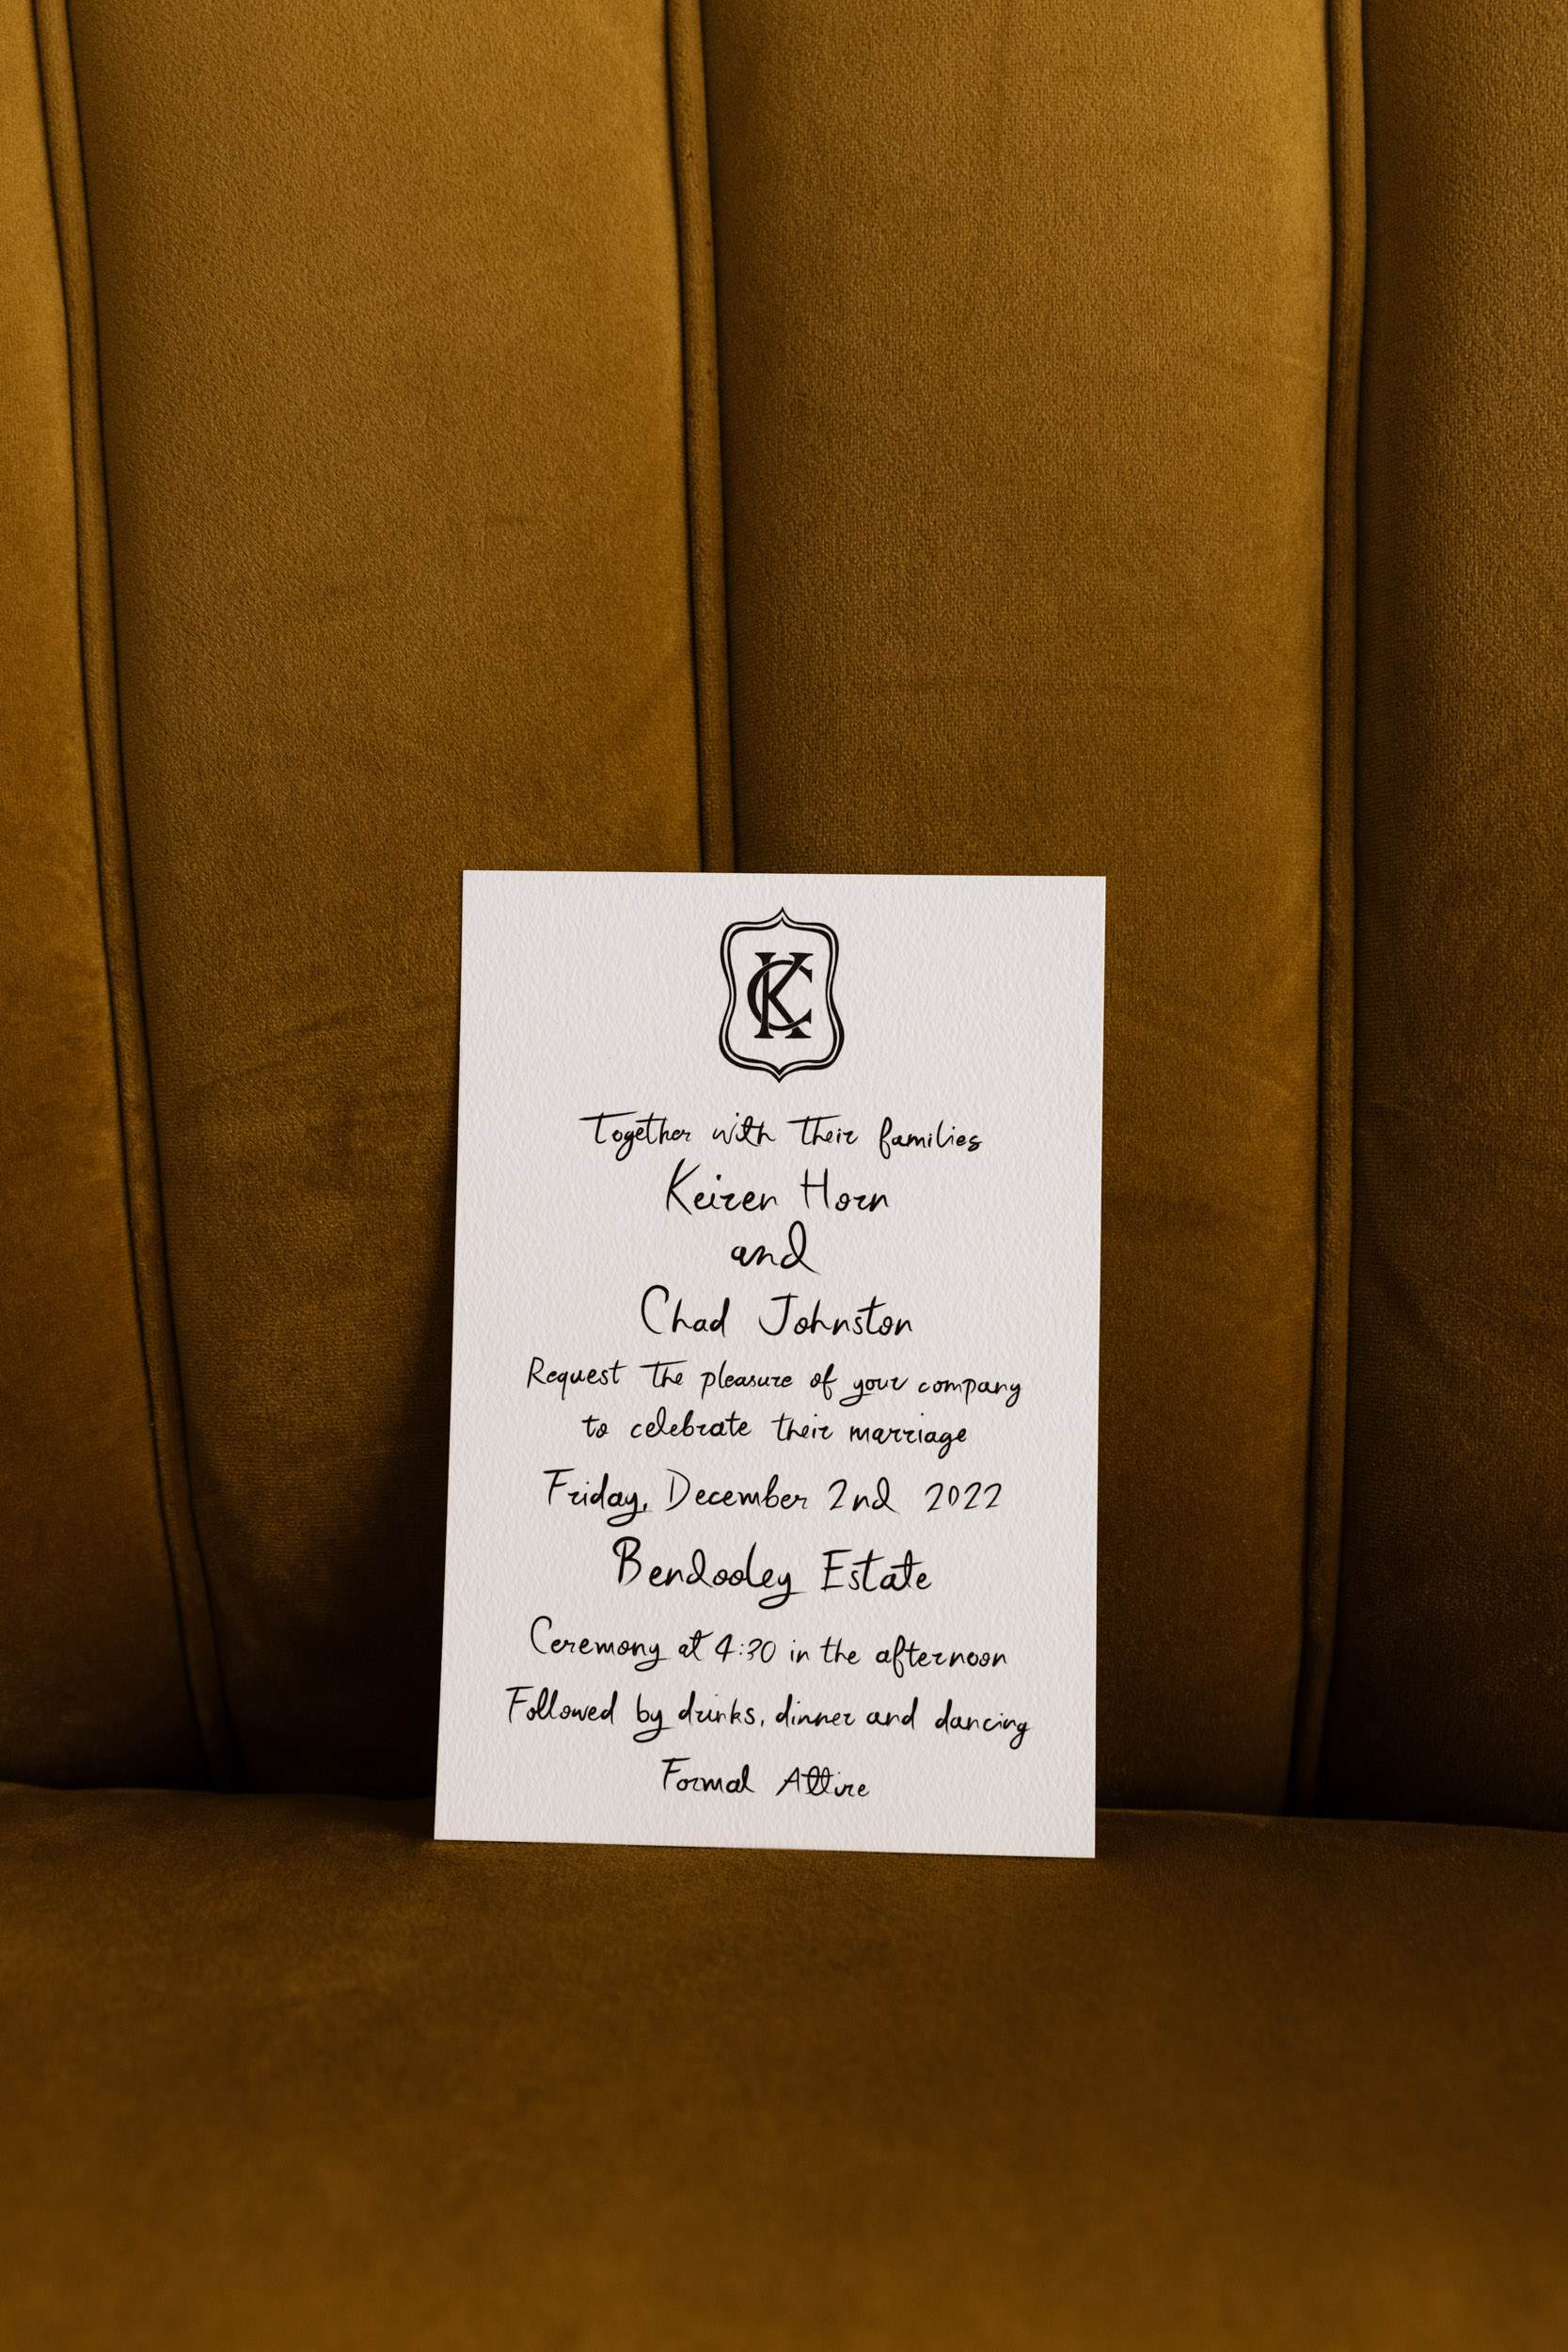 KC
Together with their families
Keiren Horn
and
Chad Johnston
Request the pleasure of your company
to celebrate their marriage
Friday, December 2nd 2022
Bendooley Estate
Ceremony at 4:30 in the afternoon
Followed by drinks, dinner and dancing
Formal Attire